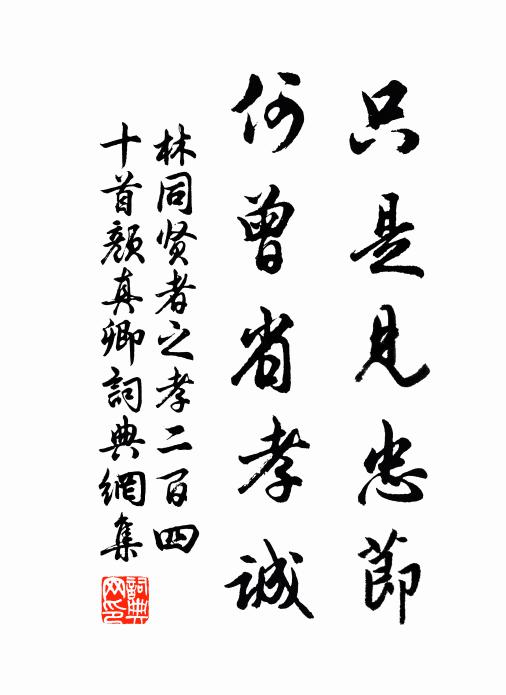 只是見忠節
何曾省孝誠
林同賢者之孝二百四
十首顏真卿詞典網集
詞典网印